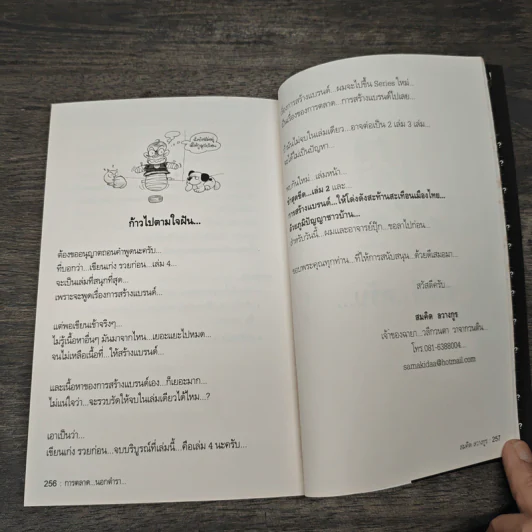 ก้าวไปตามใจฝัน...
ต้องขออนุญาตถอนคำพูดนะครับ...
ที่บอกว่า...เขียนเก่ง รวยก่อน...เล่ม 4...
จะเป็นเล่มที่สนุกที่สุด...
เพราะจะพูดเรื่องการสร้างแบรนด์...
แต่พอเขียนเข้าจริงๆ...
ไม่รู้เนื้อหาอื่นๆ มันมาจากไหน...เยอะแยะไปหมด...
จนไม่เหลือเนื้อที่...ให้สร้างแบรนด์...
และเนื้อหาของการสร้างแบรนด์เอง...ก็เยอะมาก...
ไม่แน่ใจว่า...จะรวบรัดให้จบในเล่มเดียวได้ไหม...?
เอาเป็นว่า...
เขียนเก่ง รวยก่อน...จบบริบูรณ์ที่เล่มนี้...คือเล่ม 4 นะครับ...
256 : การตลาด...นอกตำรา...
เรื่องการสร้างแบรนด์...ผมจะไปขึ้น Series ใหม่...
เป็นเรื่องของการตลาด...การสร้างแบรนด์ไปเลย...
ถ้ามันไม่จบในเล่มเดียว...อาจต่อเป็น 2 เล่ม 3 เล่ม...
จะได้ไม่เป็นปัญหา...
พบกันใหม่...เล่มหน้า...
...เล่ม 2 และ...
การสร้างแบรนด์...ให้โด่งดังสะท้านสะเทือนเมืองไทย...
ด้วยภูมิปัญญาชาวบ้าน...
สำหรับวันนี้...ผมและอาจารย์ปุ๊ก...ขอลาไปก่อน...
ขอบพระคุณทุกท่าน...ที่ให้การสนับสนุน...ด้วยดีเสมอมา...
สวัสดีครับ...
สมคิด ลวางกูร
เจ้าของฉายา...วลีกวนตา วาจากวนตีน...
โทร.081-6388004...
samakidaa@hotmail.com
สมคิด ลวางกูร : 257